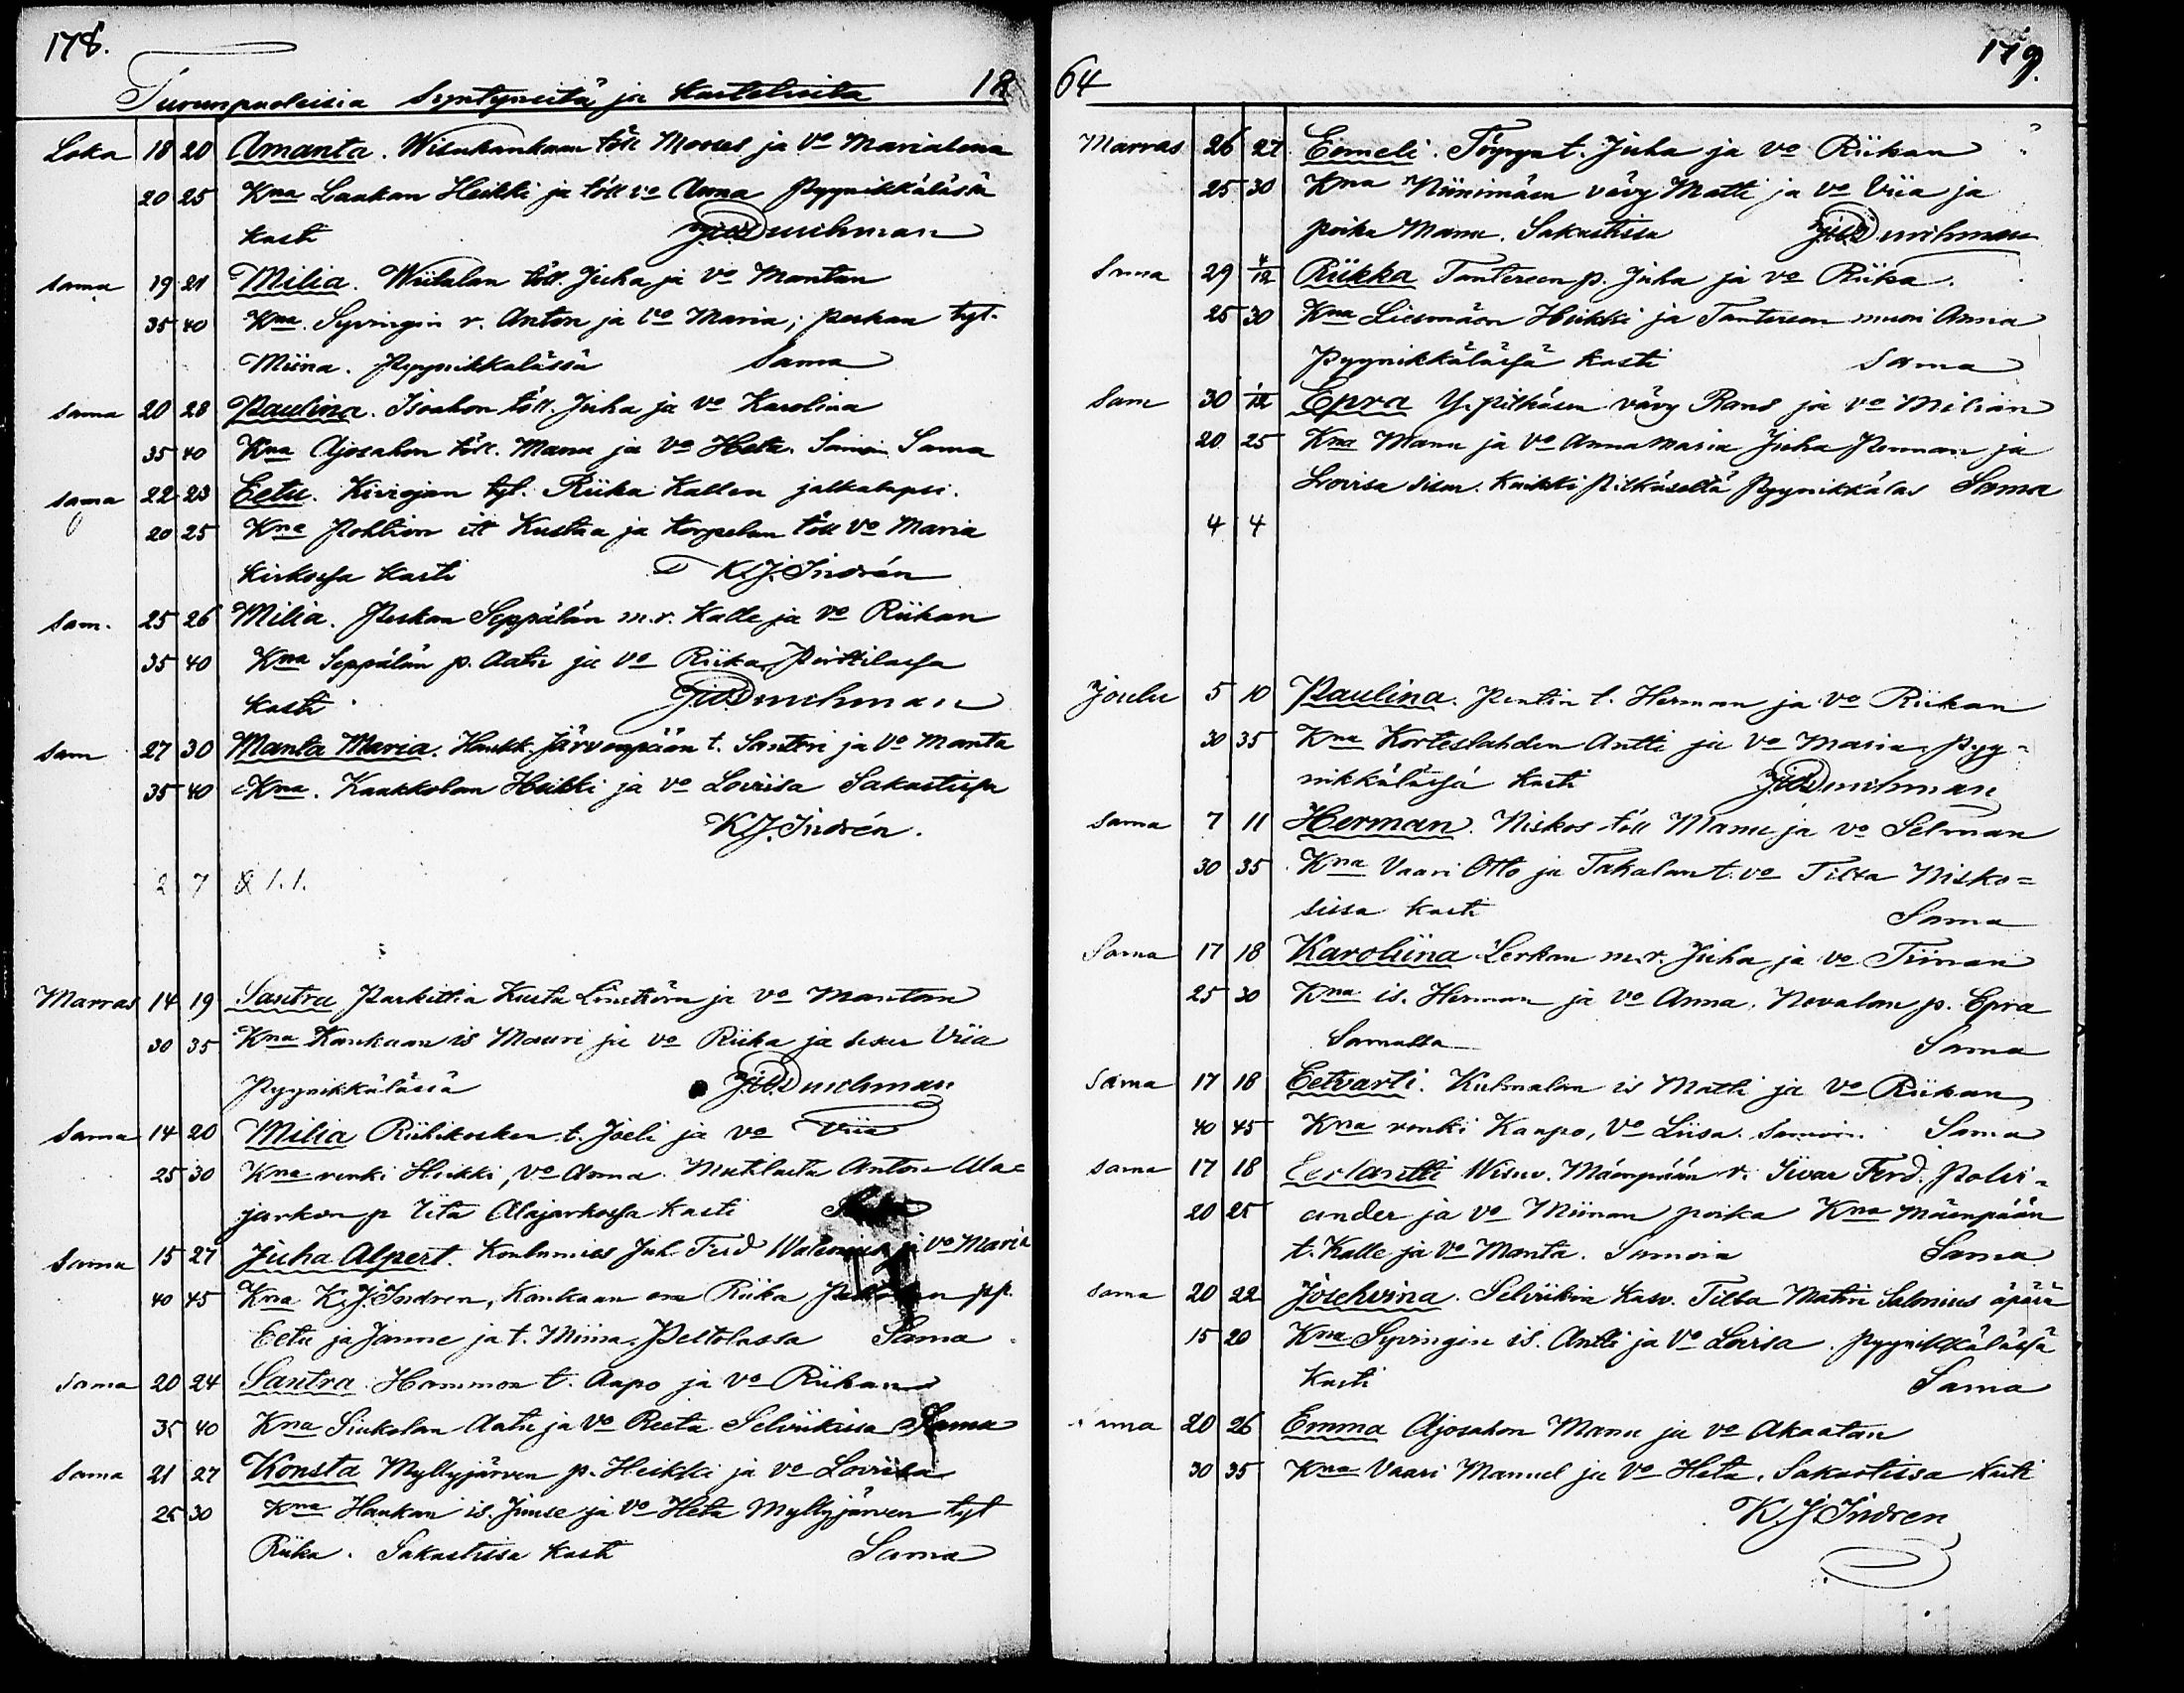 178.
Turunpuoleisia Syntyneitä ja Kasteluita 18
Loka 18 20 Amanta. Wisukankaan töll Moses ja Vo Marialena
20 25 Kna Laakan Heikki ja töll vo Anna Pyynikkälässä
kasti
sama 19 21 Milia. Wiitalan töll. Juha ja Vo Mantan
35 40 Kna. Syvingin r. Anton ja Vo Maria; Peskan tyt.
Miina. Pyynikkalässä Sama
sama 20 28 Paulina. Isoahon töll. Juha ja Vo Karolina
35 40 Kna Ajosahon töll. Manu ja Vo Heta. Samoin Sama
sama 22 23 Eetu. Kiviojan tyt. Riika Kallen jalkalapsi.
20 25 Kna Pohtion it Kustaa ja torpelan töll Vo Maria
Kirkossa kasti K.J. Indrén
Sam. 25 26 Milia. Peskan Seppälän m.r. Kalle ja Vo Riikan
35 40 Kna Seppälän p. Aatu ja Vo Riika, Perttilassa
kasti
Sam 27 30 Manta Maria. Haukk. Järvenpään t. Santeri ja Vo Manta
35 40 Kna. Kaakkolan Heikki ja Vo Loviisa Sakastissa
K.J. Indrén.
2 7 & 1.1.
Marras 14 19 Santra Parkittia Kusta Linström ja Vo Mantan
30 35 Kna Kankaan is Mauri ja Vo Riika ja sisar Viia
Pyynikkälässä
Sama 14 20 Milia Riihikosken t. Joeli ja Vo Viia
25 30 Kna renki Heikki, Vo Anna. Mutilasta Anton Ala=
jarkon p Iita Alajarkossa kasti
Sama 15 27 Juha Alpert. Koulumies Juh. Ferd Walenius ja Vo Maria
40 45 Kna K.J. Indren, Kankaan em Riika pp.
Eetu ja Janne ja t. Miina. Peltolassa Sama
Sama 20 24 Santra Hammon t. Aapo ja Vo Riikan
35 40 Kna Siukolan Aatu ja Vo Reeta Selviikissa Sama
Sama 21 27 Konsta Myllyjärven p. Heikki ja Vo Loviisa
25 30 Kna Haukan is. Junse ja Vo Heta Myllyjärven tyt
Riika. Sakastissa kasti Sama
179.
64
Marras 26 27 Eemeli. Töyryn t. Juha ja Vo Riikan
25 30 Kna Niinimäen vävy Matti ja Vo Viia ja
poika Manu. Sakastissa
Sama 29 4/12 Riikka Tantereen p. Juha ja Vo Riika.
25 30 Kna Liesmäen Heikki ja Tantereen muori Anna
Pyynikkälässä kasti Sama
Sam 30 1/12 Epra Y. pitkäsen vävy Rans ja Vo Milian
20 25 Kna Manu ja Vo Annamaria Juha Penman ja
Lovisa sisar. Kaikki Pitkäseltä Pyynikkälas Sama
4 4
Joulu 5 10 Paulina. Pentin t. Herman ja Vo Riikan
30 35 Kna Korteslahden Antti ja Vo Maria. Pyy=
nikkälässä kasti
Sama 7 11 Herman. Niskos töll Manu ja Vo Selman
30 35 Kna Vaari Otto ja Takalan t. vo Tilta Nisko=
sissa kasti Sama
Sama 17 18 Karoliina Lerkan m.r. Juha ja Vo Tiinan
25 30 Kna is. Herman ja Vo Anna, Nevalan p. Epra
Samalla Sama
Sama 17 18 Eetvarti. Kulmalan is Matti ja Vo Riikan
40 45 Kna renki Kaapo, Vo Liisa. Samoin. Sama
Sama 17 18 Eerlantti Wisuv. Mäenpään r. Iivar Ferd. Polvi=
20 25 ander ja Vo Miinan poika Kna Mäenpään
t. Kalle ja Vo Manta. Samoin Sama
Sama 20 22 Josehvina. Selviikin kasv. Tilta Matin Salonius äpärä
15 20 Kna Syvingin is. Antti ja Vo Lovisa. Pyynikkälässä
Kasti Sama
Sama 20 26 Emma Ajosahon Manu ja Vo Akaatan
30 35 Kna Vaari Manuel ja Vo Heta. Sakastissa kasti
K.J. Indren